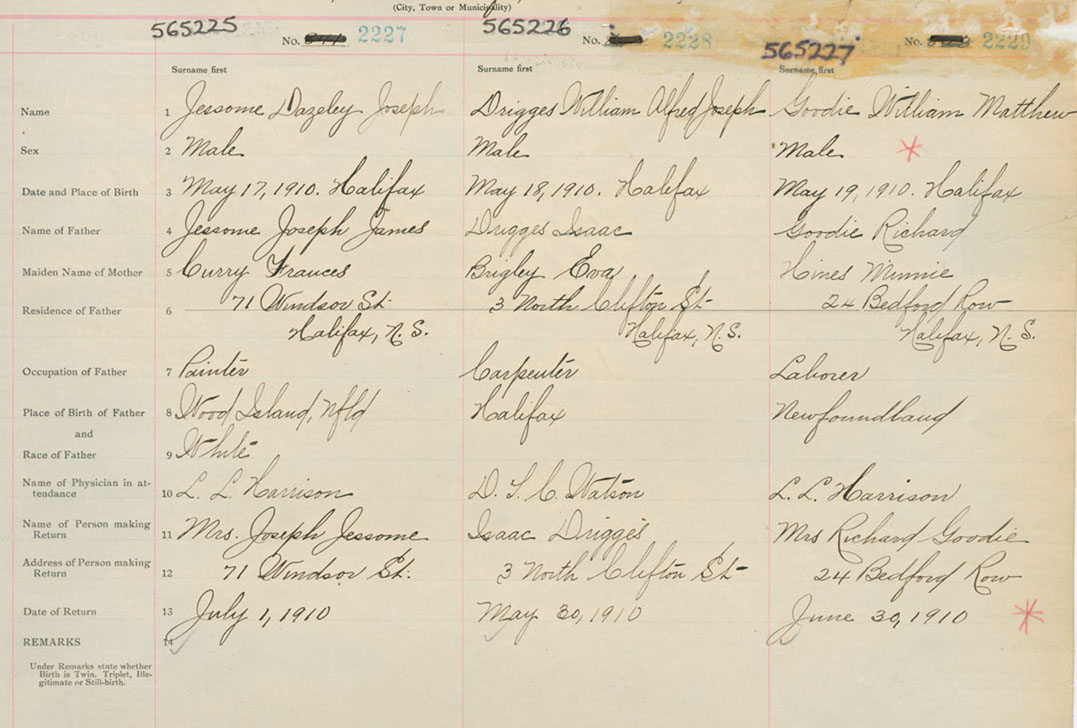 (City, Town or Municipality)
565225 No. 2227 565226 No. 2228 565227 No. 2229
Surname first Surname first Surname first
Name 1 Jessome Dazeley Joseph Drigges William Alfred Joseph Goodie William Matthew
Sex 2 Male Male Male
Date and Place of Birth 3 May 17, 1910. Halifax May 18, 1910. Halifax May 19, 1910. Halifax
Name of Father 4 Jessome Joseph James Drigges Isaac Goodie Richard
Maiden Name of Mother 5 Curry Frances Brigley Eva Hines Minnie
Residence of Father 6 71 Windsor St. 3 North Clifton St 24 Bedford Row
Halifax, N.S. Halifax, N.S. Halifax, N.S.
Occupation of Father 7 Painter Carpenter Laborer
Place of Birth of Father 8 Wood Island, Nfld Halifax Newfoundland
and
Race of Father 9 White
Name of Physician in at-
tendance 10 L. L. Harrison D. S. C. Watson L. L. Harrison
Name of Person making
Return 11 Mrs. Joseph Jessome Isaac Drigges Mrs Richard Goodie
Address of Person making
Return 12 71 Windsor St. 3 North Clifton St 24 Bedford Row
Date of Return 13 July 1, 1910 May 30, 1910 June 30, 1910
REMARKS 14
Under Remarks state whether
Birth is Twin. Triplet, Ille-
gitimate or Still-birth.